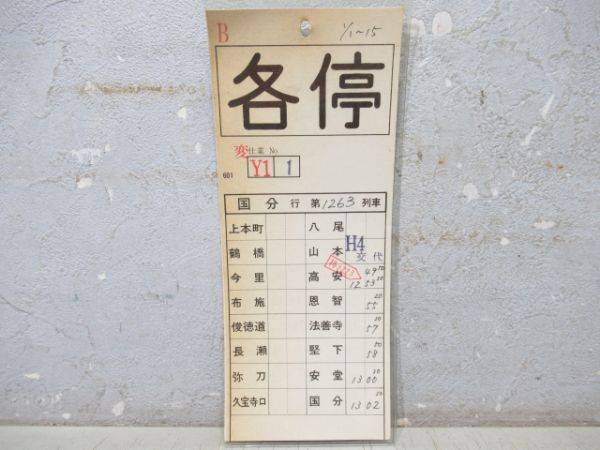 B
1/1~15
各停
変仕業 No
Y1 1
601
国分行 第1263列車
上本町 八尾
鶴橋 山本 H4 交代
今里 高安 49 50
12 53 30
布施 恩智 55 20
俊徳道 法善寺 57 10
長瀬 堅下 58 50
弥刀 安堂 13 00 20
久宝寺口 国分 13 02 50